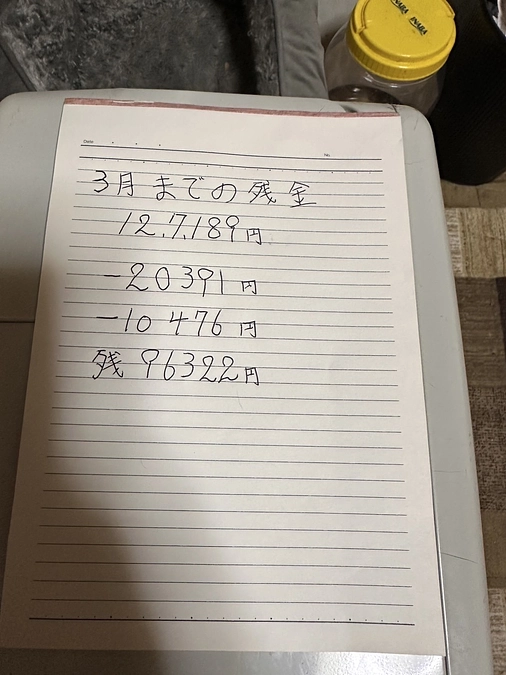 INABA INABA
Date
No.
3月までの残金
12.7.189円
-20391円
-10476円
残 96322円